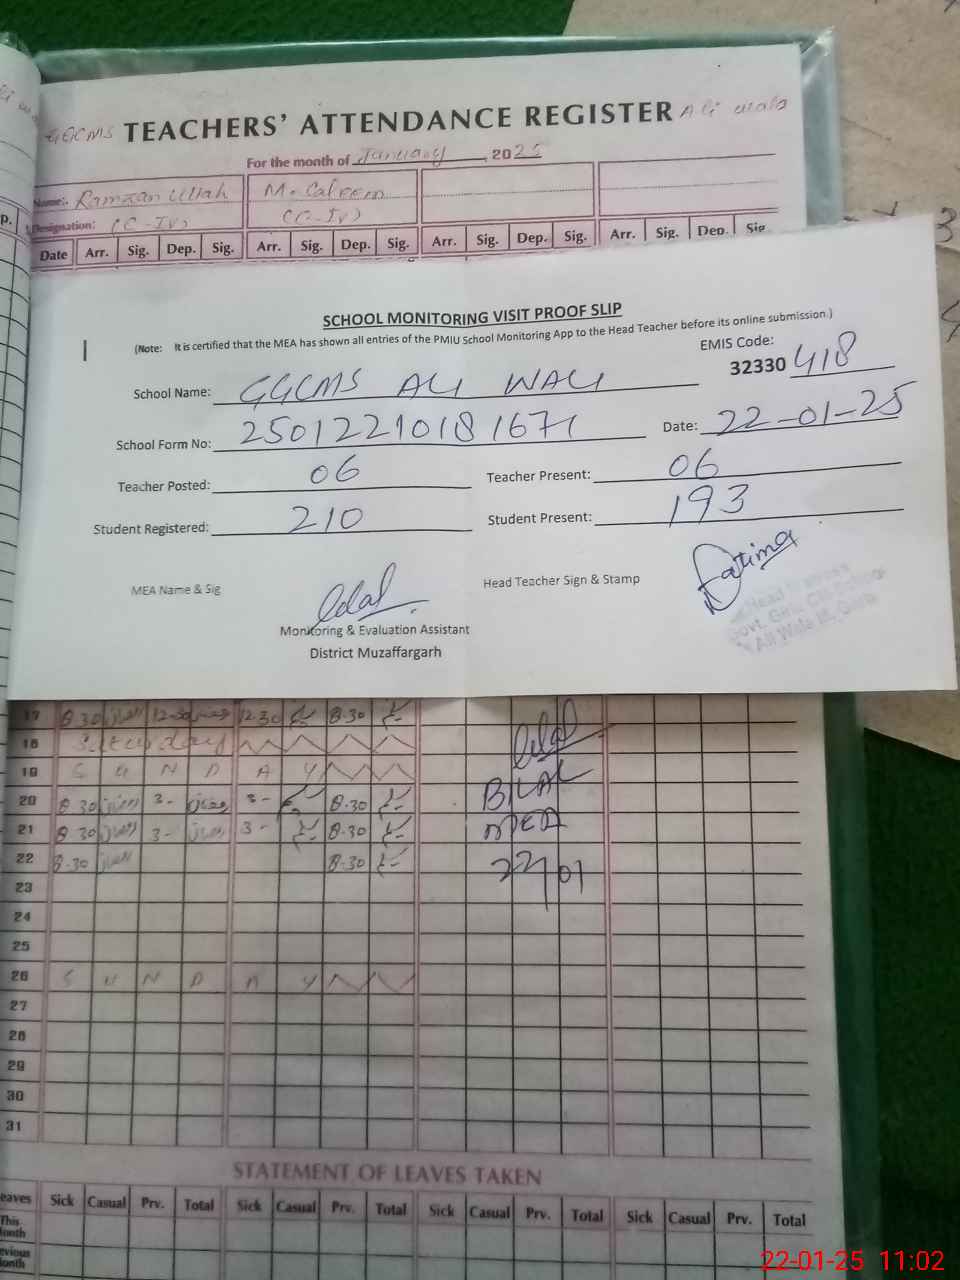 GGCMS TEACHERS' ATTENDANCE REGISTER Ali wala
For the month of January, 2025
Name:- Ramzan Ullah M. Caleem
Designation: (C-IV) (C-IV)
Date Arr. Sig. Dep. Sig. Arr. Sig. Dep. Sig. Arr. Sig. Dep. Sig. Arr. Sig. Dep. Sig.
SCHOOL MONITORING VISIT PROOF SLIP
(Note: It is certified that the MEA has shown all entries of the PMIU School Monitoring App to the Head Teacher before its online submission.)
EMIS Code:
32330 418
School Name: GGCMS ALI WALI
School Form No: 25012210181671 Date: 22-01-25
Teacher Posted: 06 Teacher Present: 06
Student Registered: 210 Student Present: 193
MEA Name & Sig Head Teacher Sign & Stamp Fatima
Monitoring & Evaluation Assistant
District Muzaffargarh
Govt. Girls
17 8.30 12-30 12.30 8.30
18 Saturday
19 S U N D A Y
20 8 30 3- 3- 8.30 BILAL
21 8 30 3- 3- 8.30 MEA
22 8.30 8.30 22/01
23
24
25
26 S U N D A Y
27
28
29
30
31
STATEMENT OF LEAVES TAKEN
eaves Sick Casual Prv. Total Sick Casual Prv. Total Sick Casual Prv. Total Sick Casual Prv. Total
This
onth
evious
onth
22-01-25 11:02